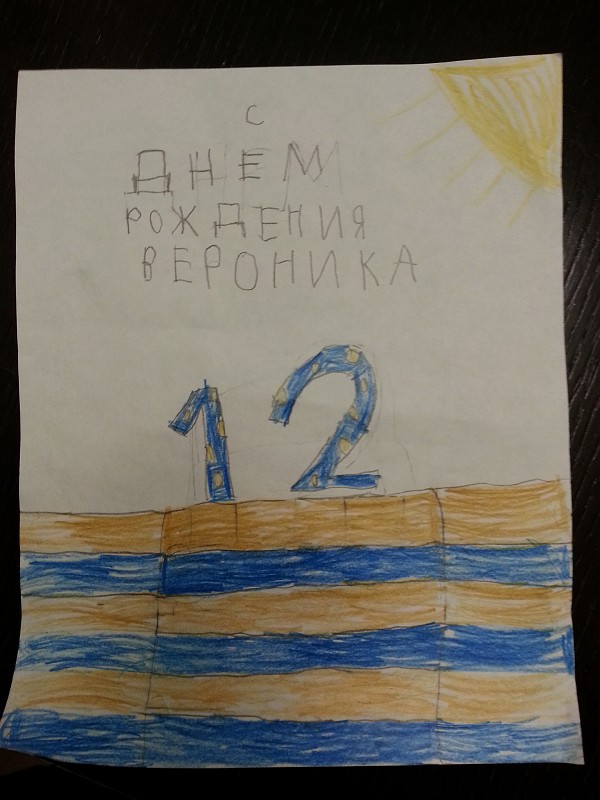 С
ДНЕМ
РОЖДЕНИЯ
ВЕРОНИКА
12